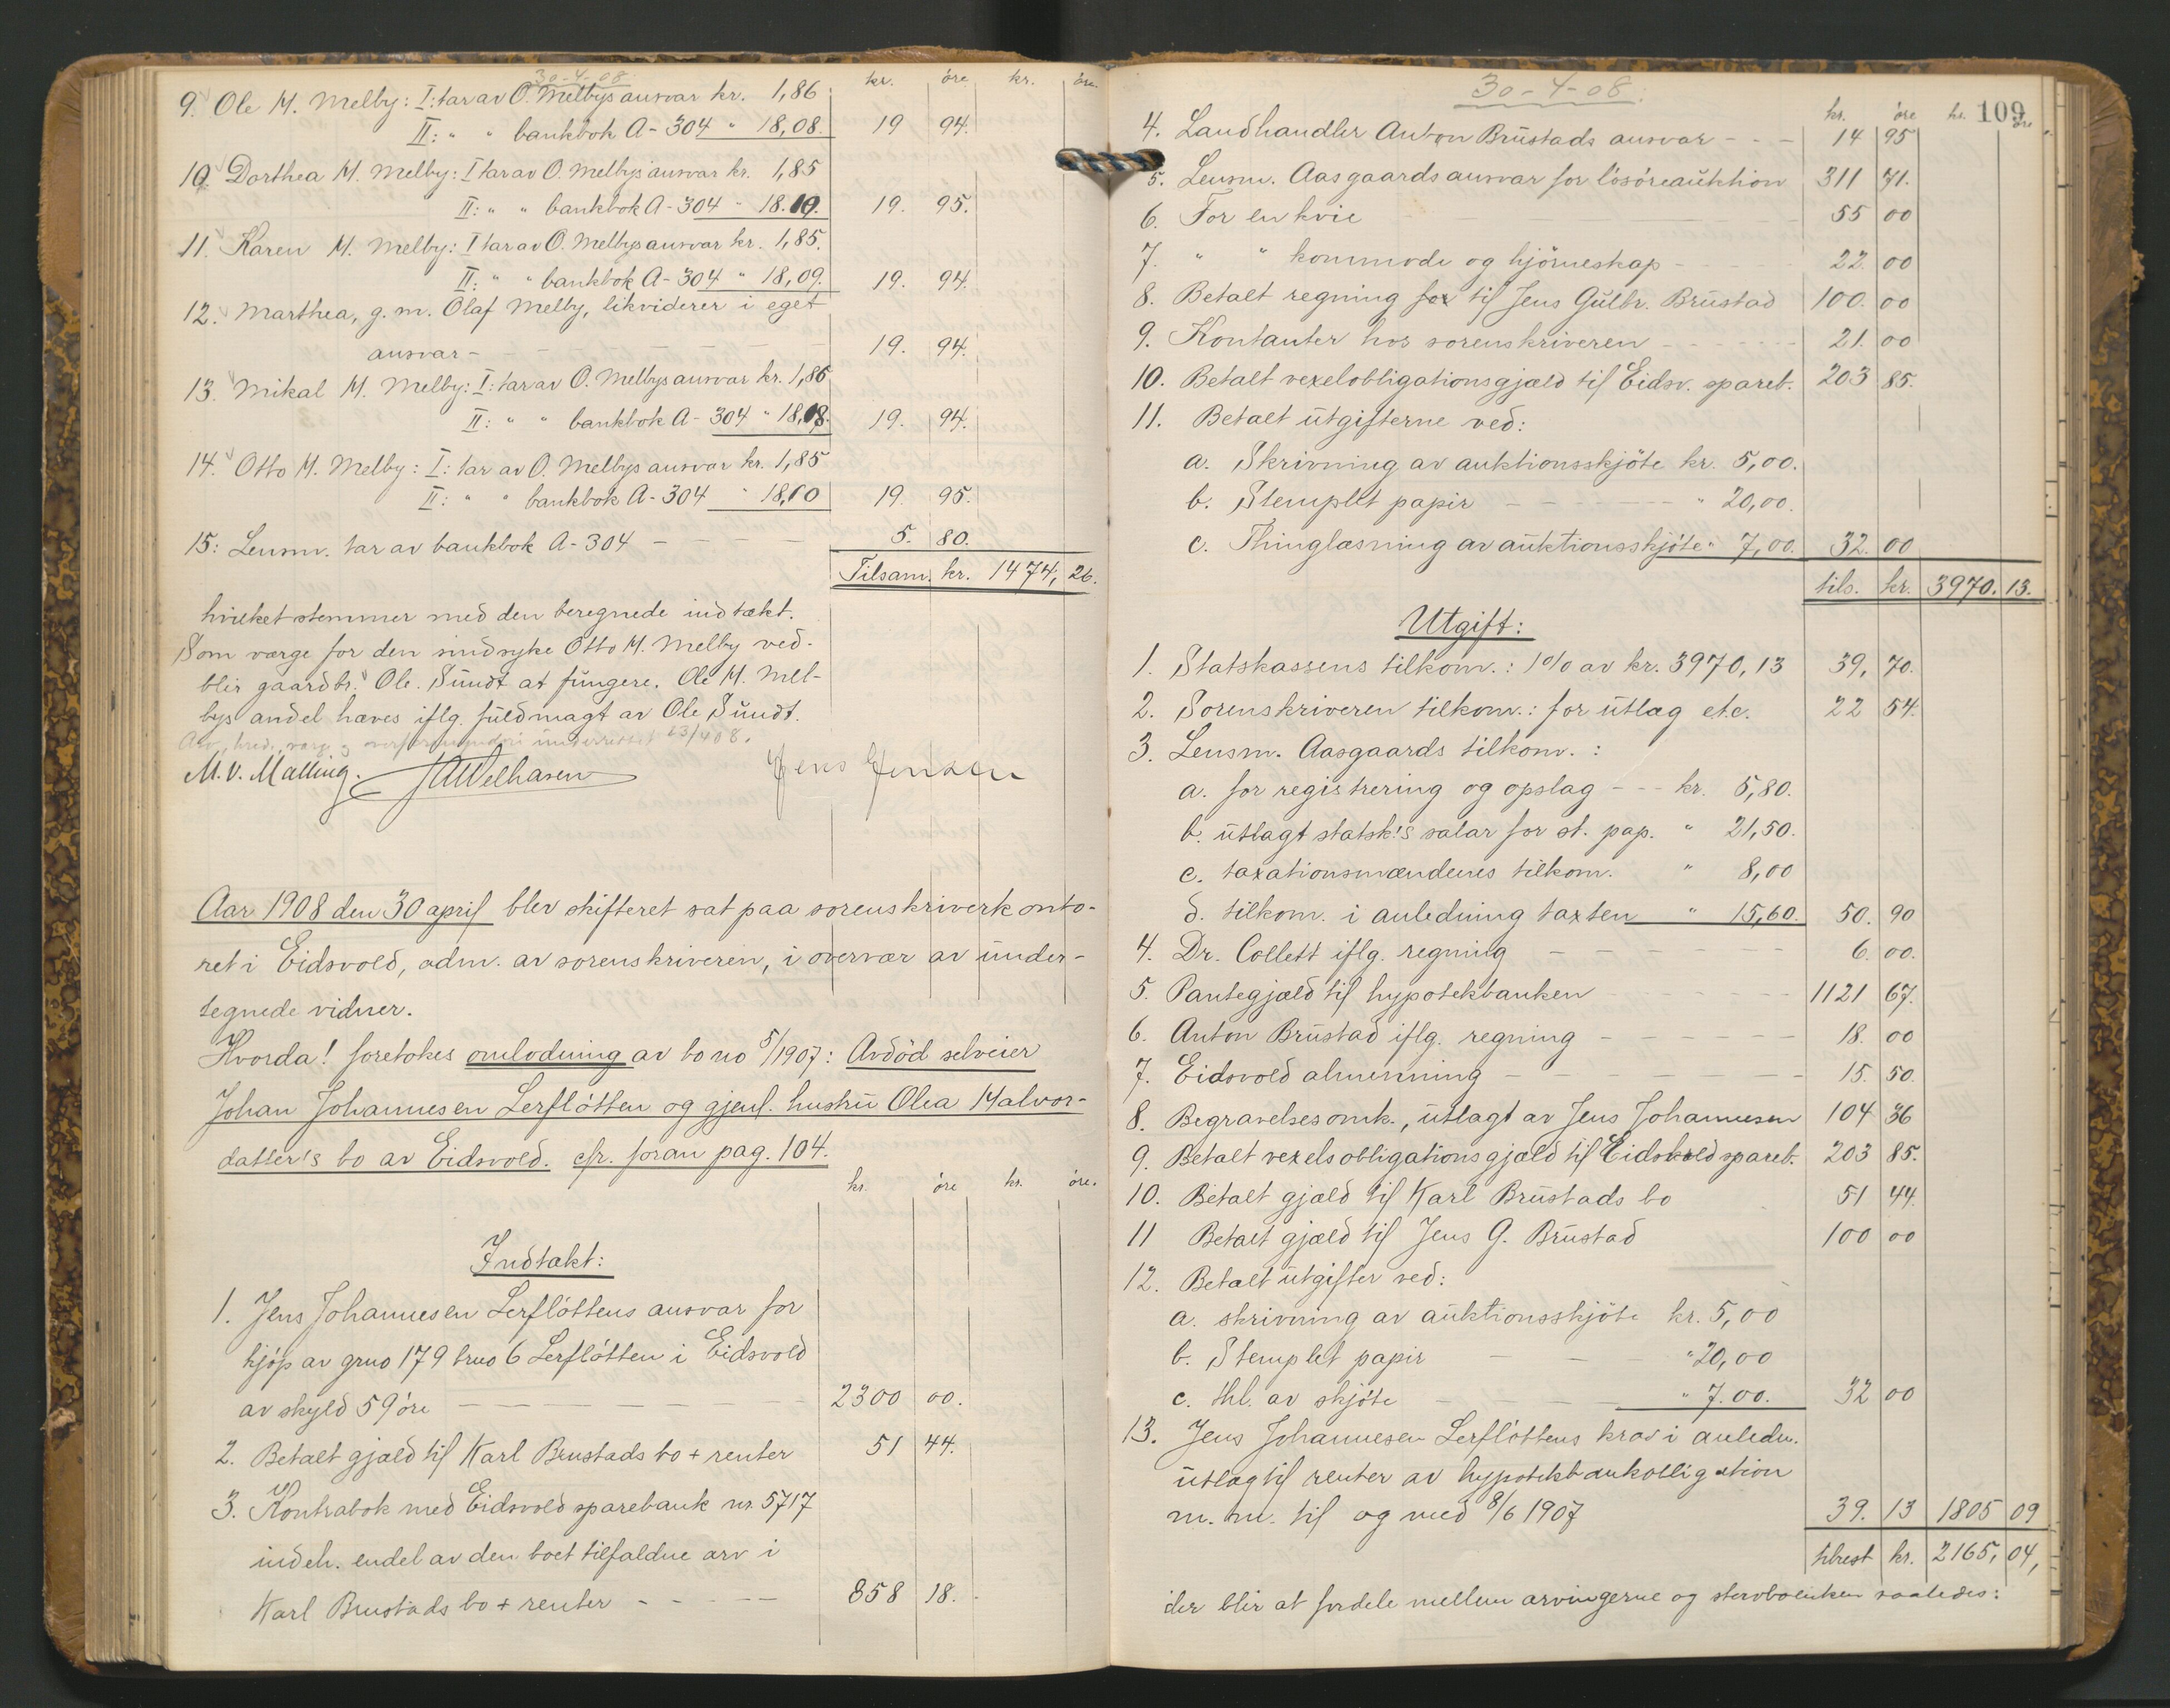 30-4-08
kr. øre kr. øre.
9. Ole M. Melby: I: tar av O. Melbys ansvar kr. 1,86
II: " " bankbok A-304 " 18,08. 19 94.
10. Dorthea M. Melby: I tar av O. Melbys ansvar kr. 1,85
II: " " bankbok A-304 " 18.10. 19. 95.
11. Karen M. Melby: I tar av O. Melbys ansvar kr. 1,85.
II: " " bankbok A-304 " 18,09. 19. 94.
12. Marthea, g. m. Olaf Melby, likviderer i eget
ansvar - 19. 94.
13. Mikal M. Melby: I: tar av O. Melbys ansvar kr. 1,86
II: " " bankbok A-304 " 18,08. 19. 94.
14. Otto M. Melby: I: tar av O. Melbys ansvar kr. 1,85
II: " " bankbok A-304 " 18,10 19. 95.
15: Lensm. tar av bankbok A-304 5. 80.
Tilsam. kr. 1474, 26.
hvilket stemmer med den beregnede indtækt.
Som værge for den sindsyke Otto M. Melby ved-
blir gaardbr. Ole Sundt at fungere. Ole M. Mel-
bys andel hæves iflg. fuldmagt av Ole Sundt.
underrettet 23/4 08.
M. V. Malling. JAWelhaven Jens Jensen
Aar 1908 den 30 april blev skifteret sat paa sorenskriverkonto-
ret i Eidsvold, adm. av sorenskriveren, i overvær av under-
tegnede vidner.
Hvorda! foretokes omlodning av bo no 5/1907: Avdöd selveier
Johan Johannesen Lerflötten og gjenl. hustru Olea Halvor-
datter's bo av Eidsvold. cfr. foran pag. 104.
kr. öre kr. öre.
Indtækt:
1. Jens Johannesen Lerflöttens ansvar for
kjöp av grno 179 brno 6 Lerflötten i Eidsvold
av skyld 59 öre 2300 00.
2. Betalt gjæld til Karl Brustads bo + renter 51 44.
3. Kontrabok med Eidsvold sparebank nr. 5717
indeh. endel av den boet tilfaldne arv i
Karl Brustads bo + renter 858 18.
30-4-08.
109
kr. öre kr. öre
4. Landhandler Anton Brustads ansvar - - - 14 95
5. Lensm. Aasgaards ansvar for lösöreauktion 311 71.
6. For en kvie 55 00
7. " " kommode og hjörneskap - 22 00
8. Betalt regning for til Jens Gulbr. Brustad 100. 00
9. Kontanter hos sorenskriveren 21. 00
10. Betalt vexelobligationsgjæld til Eidsv. spareb. 203 85.
11. Betalt utgifterne ved:
a. Skrivning av auktionsskjöte kr. 5,00.
b. Stemplet papir " 20,00.
c. Thinglæsning av auktionsskjöte " 7,00. 32. 00
tils. kr. 3970. 13.
Utgift:
1. Statskassens tilkom.: 1% av kr. 3970,13 39, 70.
2. Sorenskriveren tilkom.: for utlæg etc. 22 54.
3. Lensm. Aasgaards tilkom. :
a. for registrering og opslag - - - kr. 5,80.
b. utlagt statsk's salær for st. pap. " 21,50.
c. taxationsmændenes tilkom. " 8,00
d. tilkom. i anledning taxten " 15,60. 50. 90
4. Dr. Collett iflg. regning 6. 00.
5. Pantegjæld til hypotekbanken 1121 67.
6. Anton Brustad iflg. regning 18. 00
7. Eidsvold almenning 15. 50
8. Begravelsesomk., utlagt av Jens Johannesen 104 36
9. Betalt vexelsobligationsgjæld til Eidsvold spareb. 203 85.
10. Betalt gjæld til Karl Brustads bo 51 44.
11 Betalt gjæld til Jens G. Brustad 100 00
12. Betalt utgifter ved:
a. skrivning av auktionsskjöte kr. 5,00
b. Stemplet papir " 20,00
c. thl. av skjöte " 7.00. 32 00
13. Jens Johannesen Lerflöttens krav i anledn.
utlæg til renter av hypotekbankobligation
m. m. til og med 8/6 1907 39. 13 1805 09
tilrest kr. 2165, 04,
der blir at fordele mellem arvingerne og stervboenken saaledes: